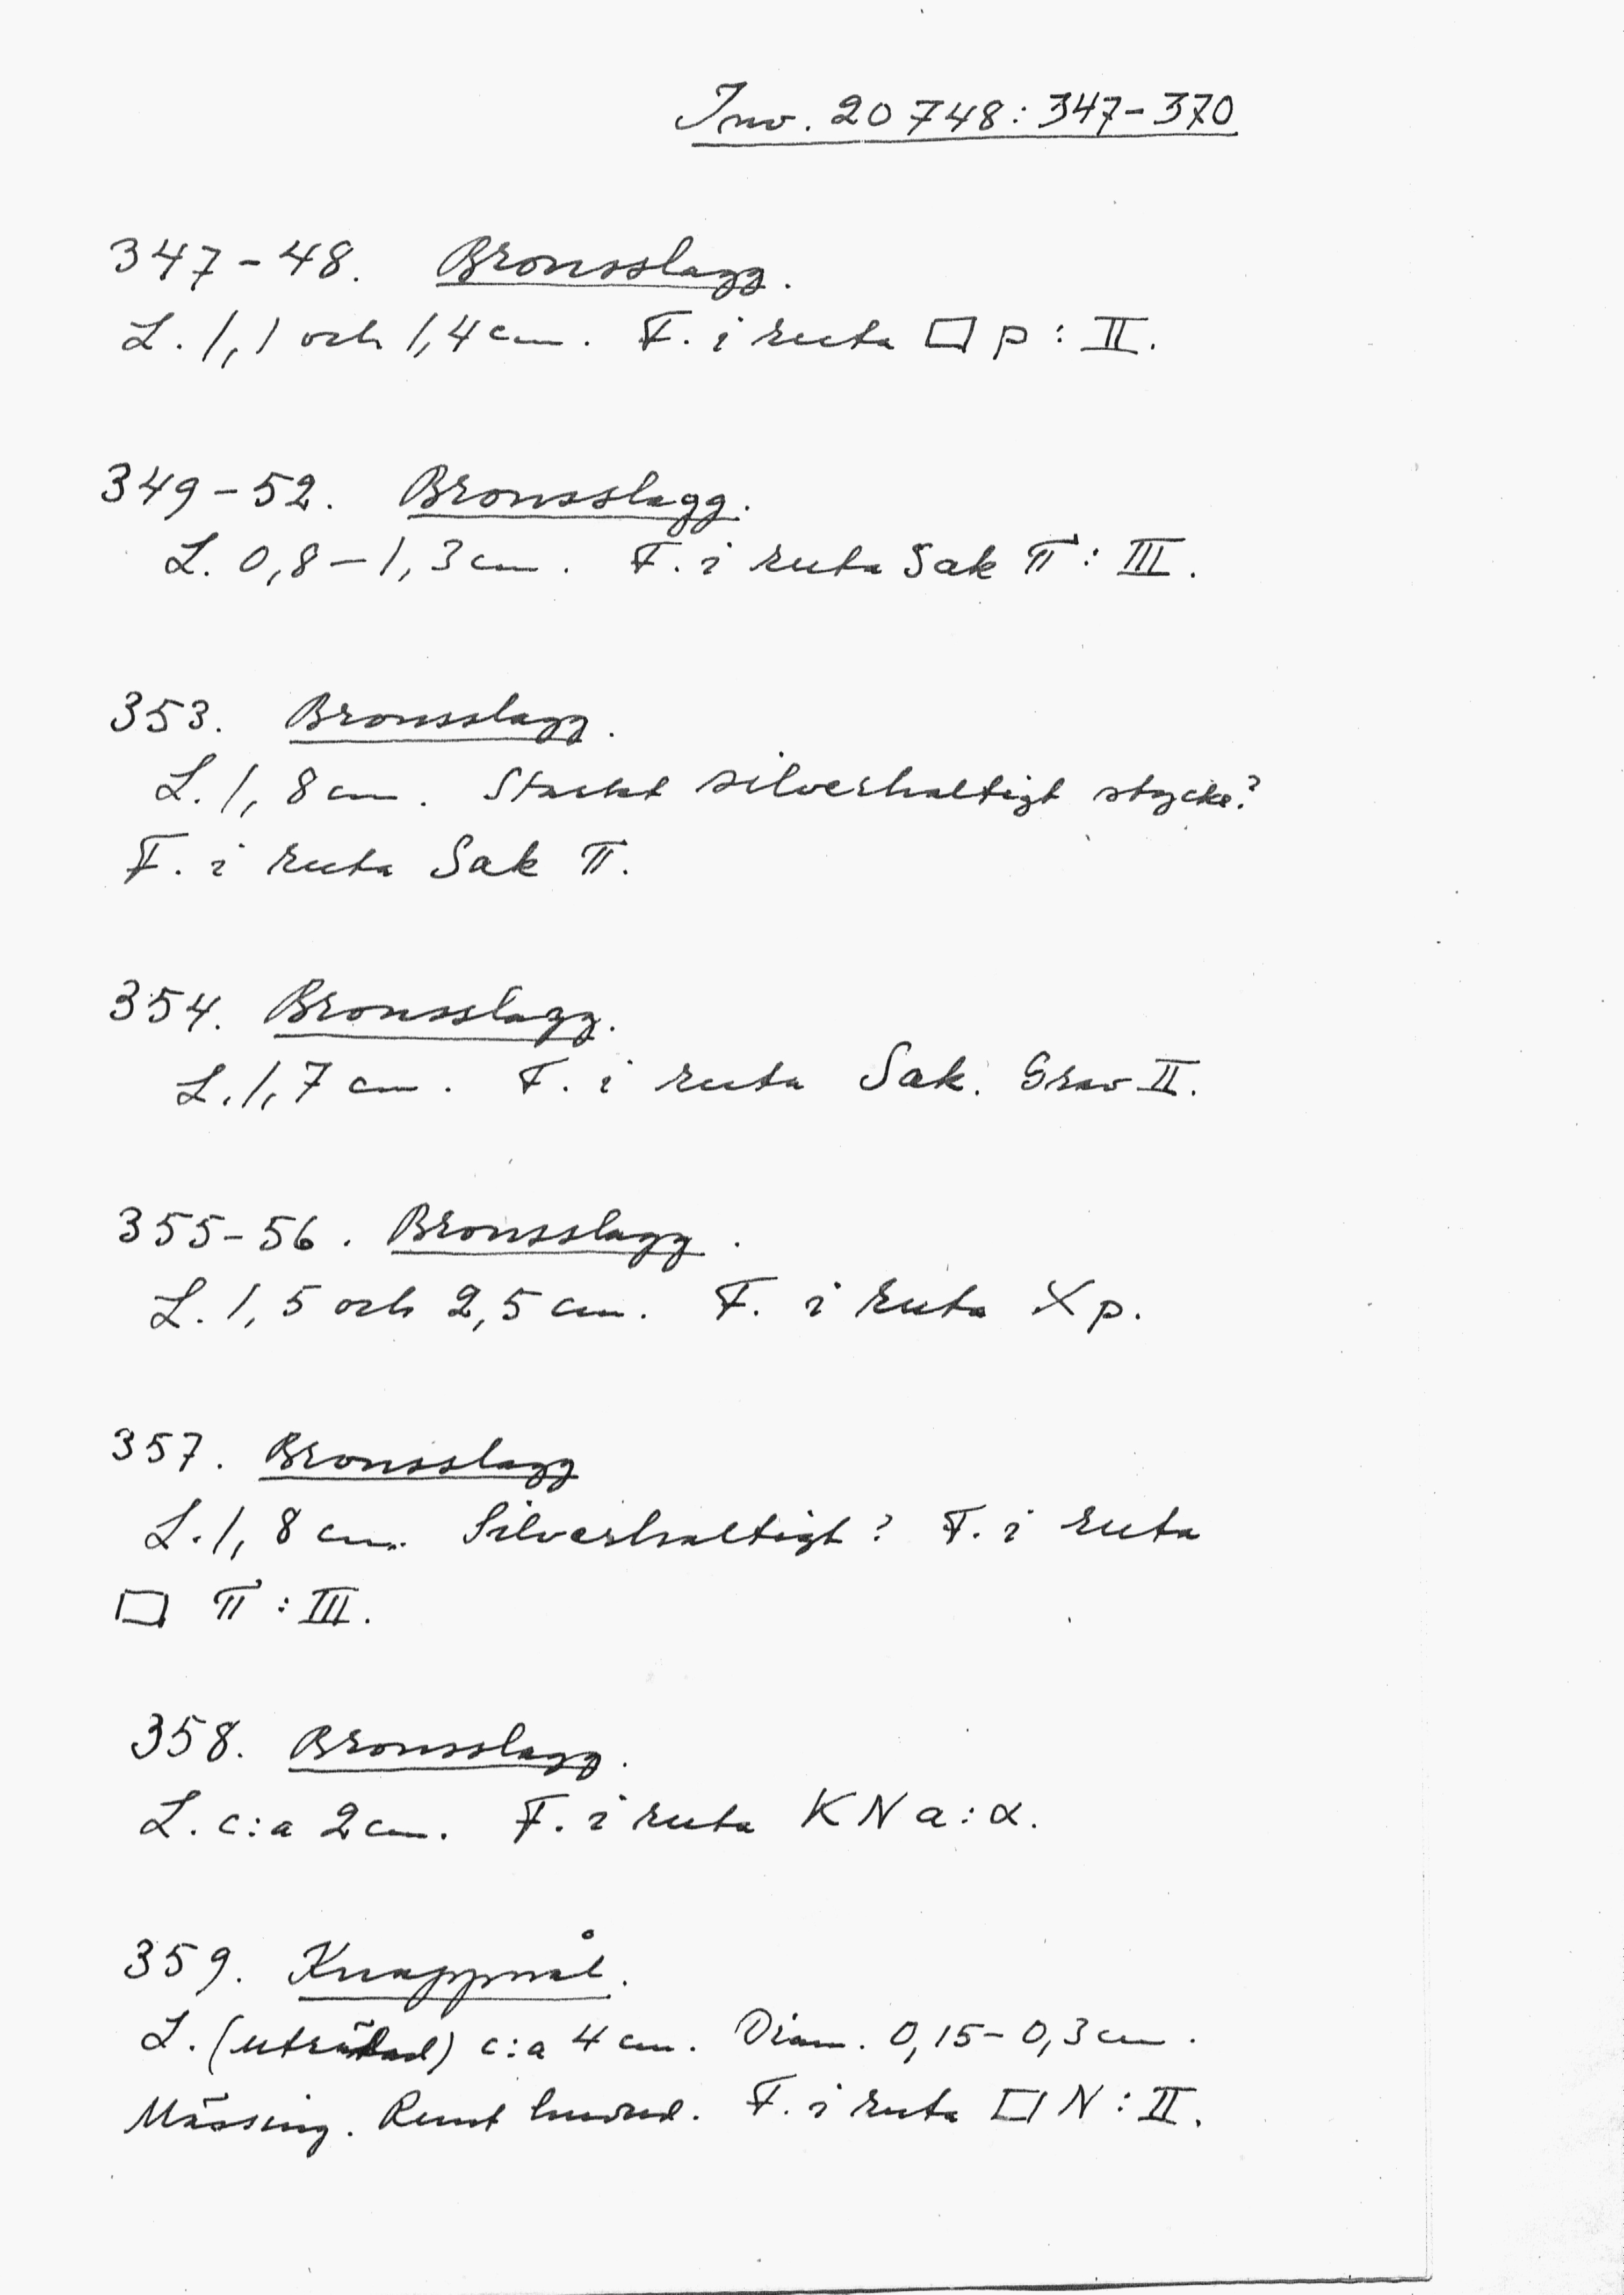 Inv. 20748:347-370
347-48. Bronsslagg.
L. 1,1 och 1,4 cm. F. i ruta □ p : II.
349-52. Bronsslagg.
L. 0,8-1,3 cm. F. i ruta Sak π : III.
353. Bronsslagg.
L. 1,8 cm. Starkt silverhaltigt stycke?
F. i ruta Sak π.
354. Bronsslagg.
L. 1,7 cm. F. i ruta Sak. Grav II.
355-56. Bronsslagg.
L. 1,5 och 2,5 cm. F. i ruta X p.
357. Bronsslagg
L. 1,8 cm. Silverhaltigt? F. i ruta
□ π : III.
358. Bronsslagg.
L. c:a 2 cm. F. i ruta KN a:α.
359. Knappnål.
L. (uträtad) c:a 4 cm. Diam. 0,15-0,3 cm.
Mässing. Runt huvud. F. i ruta □ N : II.